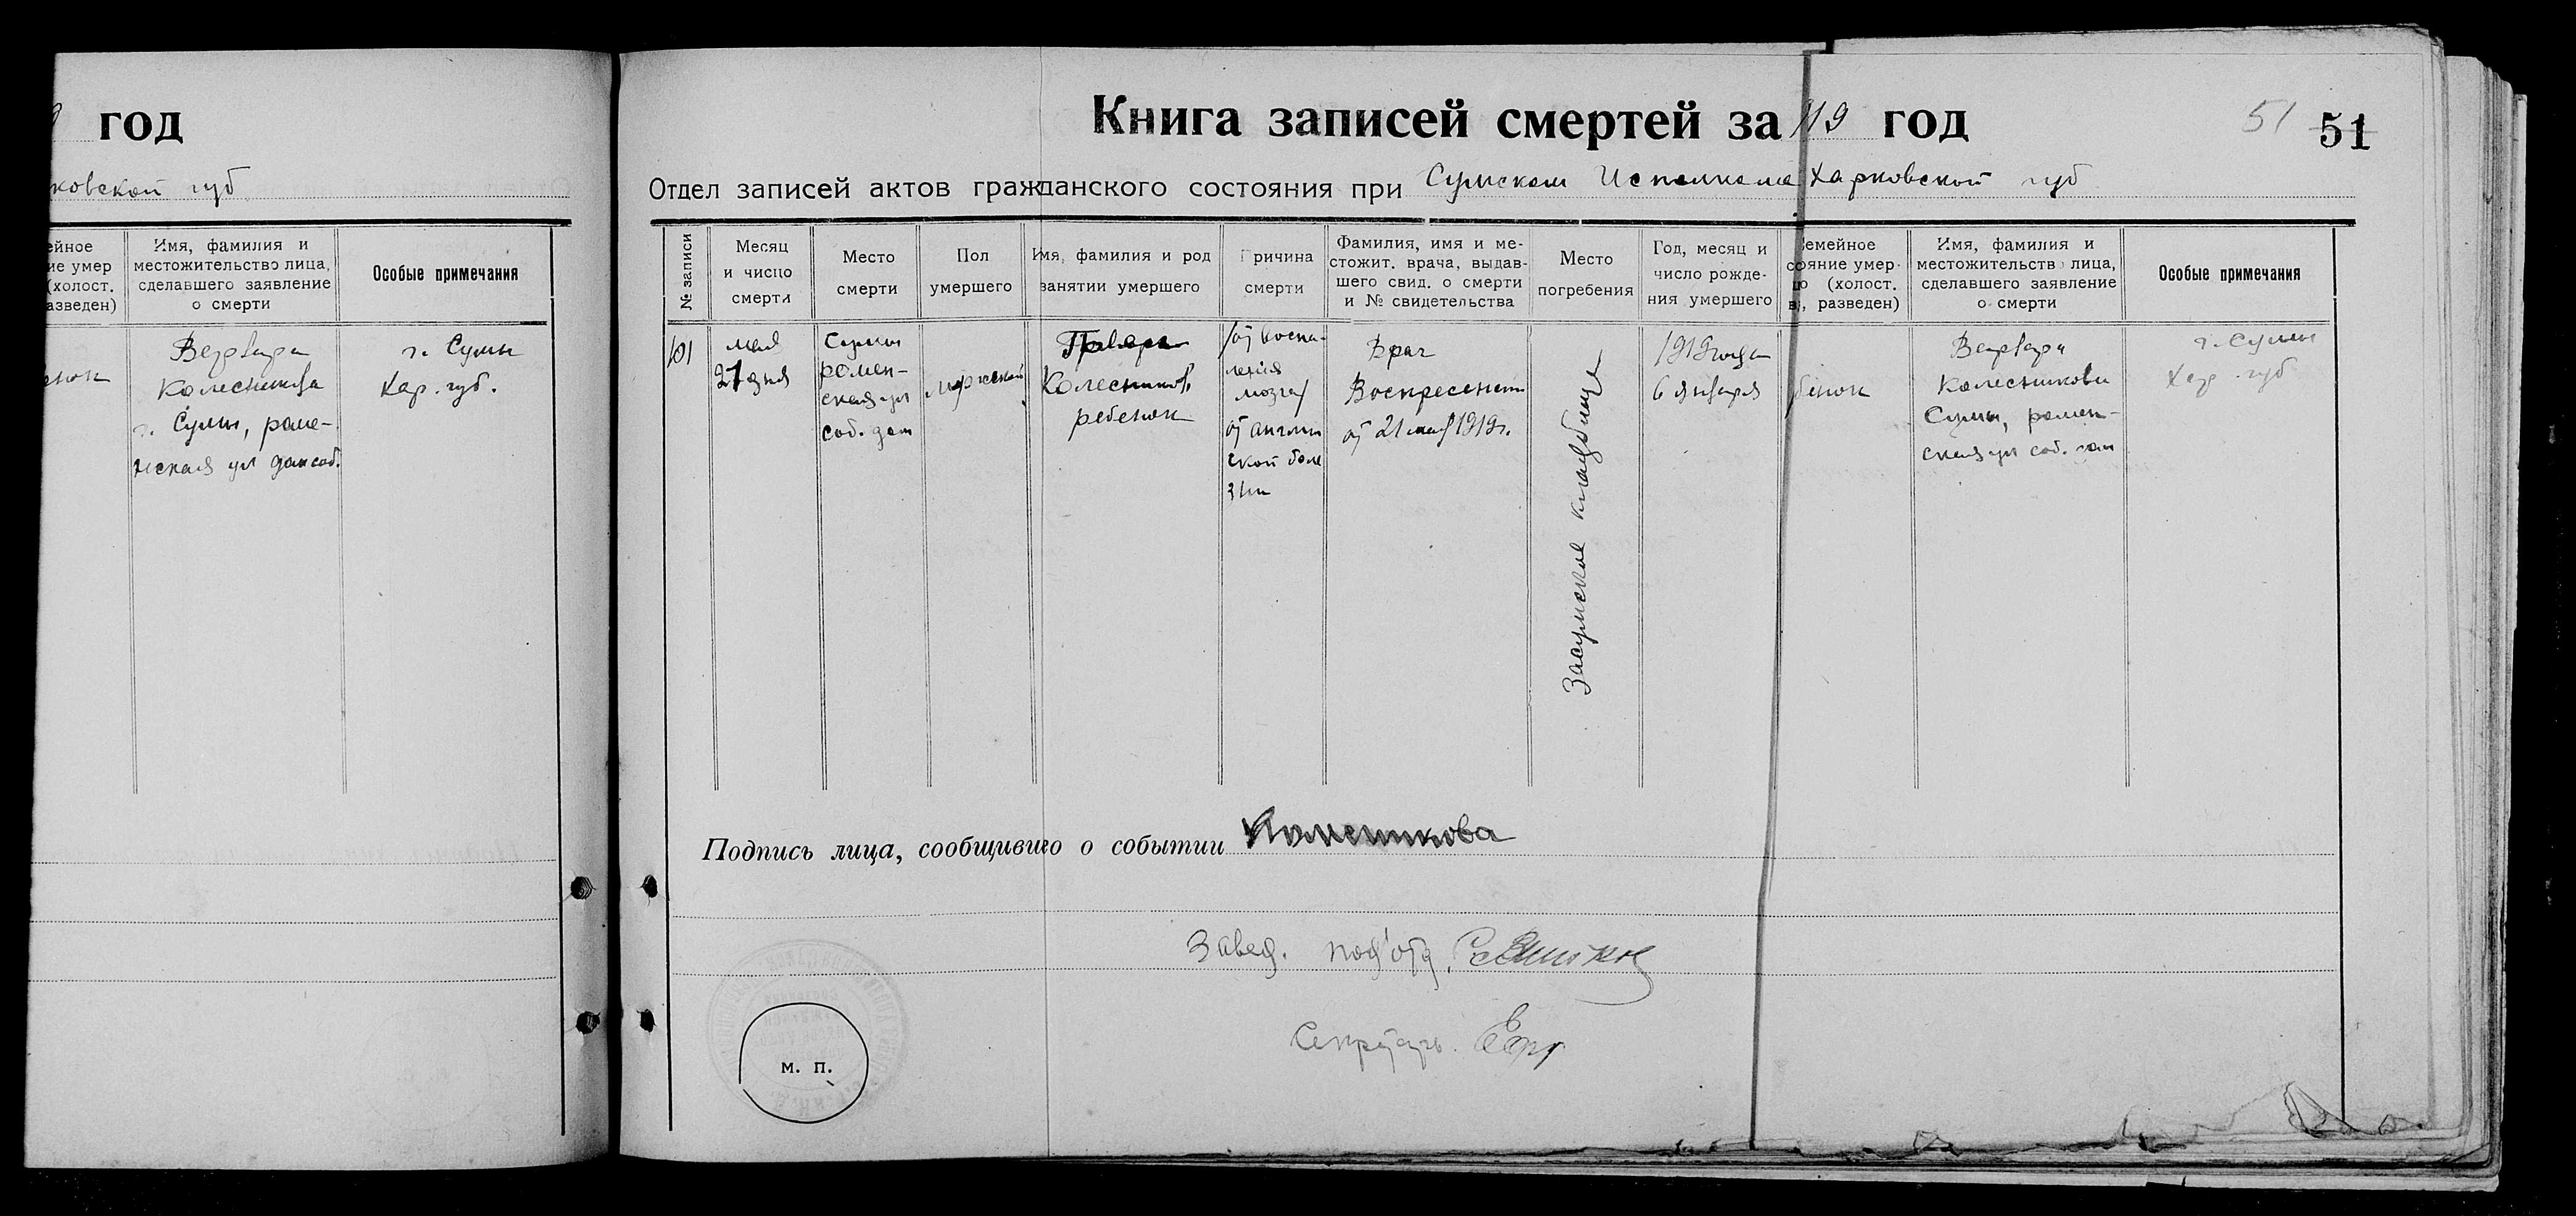 год
ковской губ
ейное
ие умер
(холост.
азведен)
Имя, фамилия и
местожительство лица,
сделавшего заявление
о смерти
Особые примечания
енок
Варвара
Колесникова
г. Сумы, роме-
нская ул дом соб.
г. Сумы
Хар. губ.
Книга записей смертей за 919 год
51 51
Отдел записей актов гражданского состояния при Сумском Исполкоме Харковской губ
№ записи
Месяц
и число
смерти
Место
смерти
Пол
умершего
Имя, фамилия и род
занятии умершего
Причина
смерти
Фамилия, имя и ме-
стожит. врача, выдав-
шего свид. о смерти
и № свидетельства
Место
погребения
Год, месяц и
число рожде-
ния умершего
семейное
сояние умер-
го (холост.
в, разведен)
Имя, фамилия и
местожительство лица,
сделавшего заявление
о смерти
Особые примечания
101
мая
21 дня
Сумы
ромен-
ская ул
соб. дом
мужской
Колесников,
ребенок
/от воспа-
ления
мозга/
от англий
ской боле
зни
Врач
Воскресенский
от 21 мая 1919г.
Засумское кладбище
1919 года
6 января
бенок
Варвара
Колесникова
Сумы, ромен-
ская ул соб. дом
г. Сумы
Хар. губ
Подпись лица, сообщившего о событии Колесникова
Завед. под'отд.
Секретарь.
м. п.